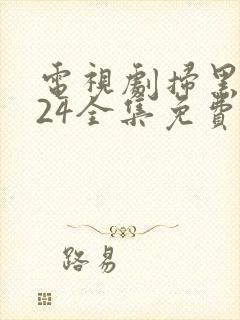 電視劇掃黑
24全集免費
路易